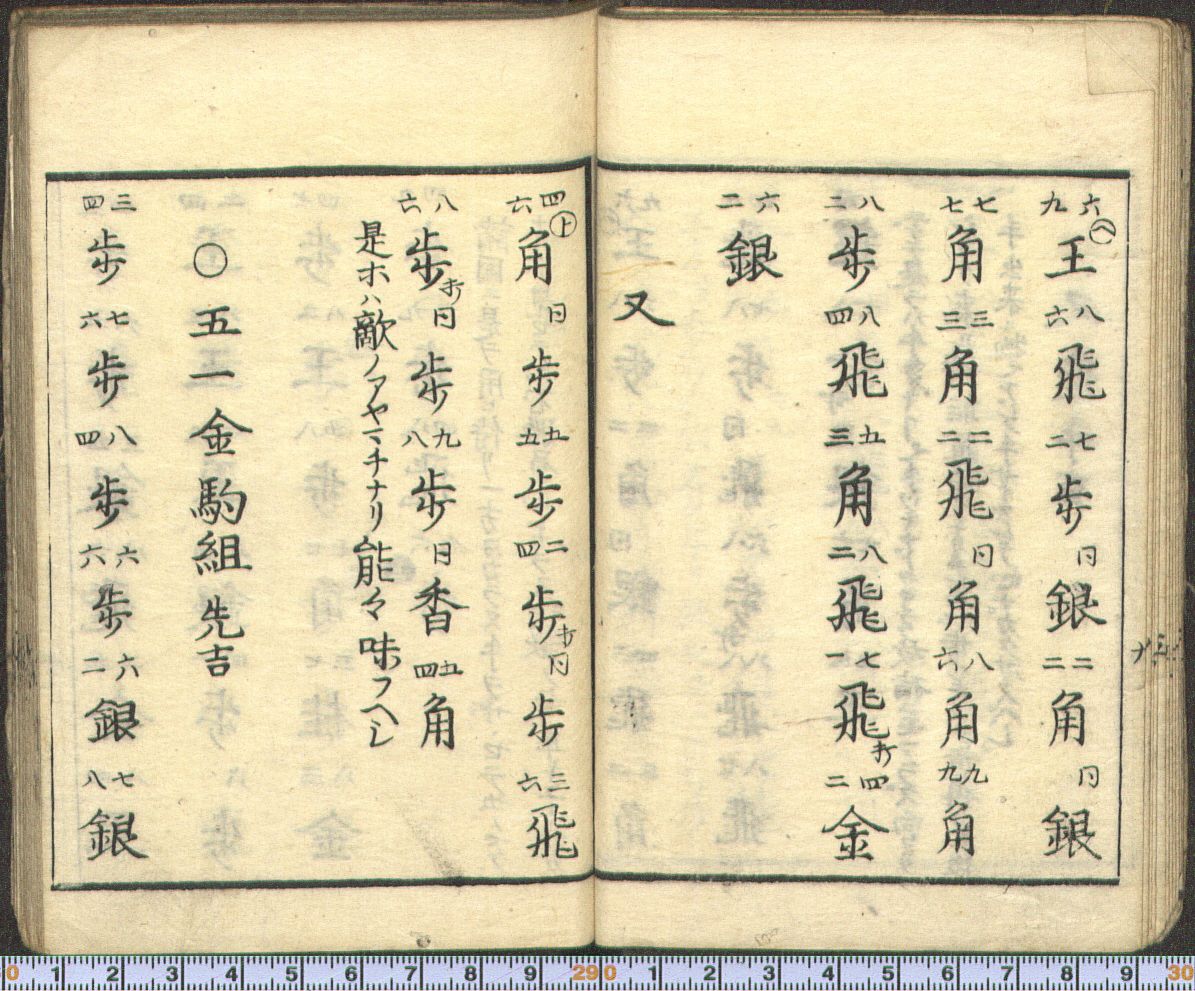 六九㋬王八六飛七二歩同銀二二角同銀
七七角三三角二二飛同角八六角九九角
八二歩八四飛五三角八二飛七一飛打四二金
六二銀
又
四六㋣角同歩五五歩二四歩打同歩三六飛
八六歩打同歩九八歩同香五四角
是ホハ敵ノアヤマチナリ能々味フヘシ
○五一金駒組先吉
三四歩七六歩八四歩六六歩六二銀七八銀
0 1 2 3 4 5 6 7 8 9 290 1 2 3 4 5 6 7 8 9 30